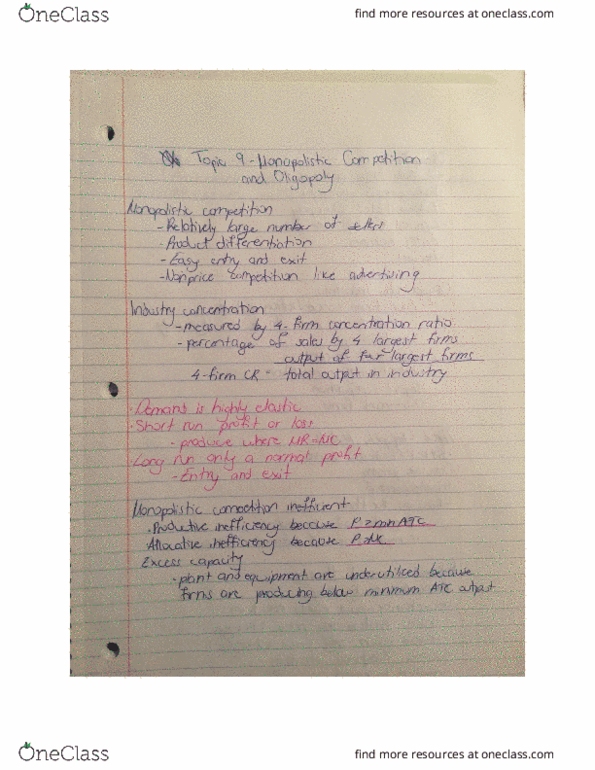 OneClass
find more resources at oneclass.com
Topic 9 - Monopolistic Competition
and Oligopoly
Monopolistic competition
- Relatively large number of sellers
- Product differentiation
- Easy entry and exit
- Nonprice competition like advertising
Industry concentration
- measured by 4-firm concentration ratio
- percentage of sales by 4 largest firms
output of four largest firms
4-firm CR = total output in industry
· Demand is highly elastic
· Short run profit or loss
- produce where MR=MC
· Long run only a normal profit
- Entry and exit
Monopolistic competition inefficient
· Productive inefficiency because P>min ATC
Allocative inefficiency because P>MC
Excess capacity
· plant and equipment are underutilised because
firms are producing below minimum ATC output
OneClass
find more resources at oneclass.com